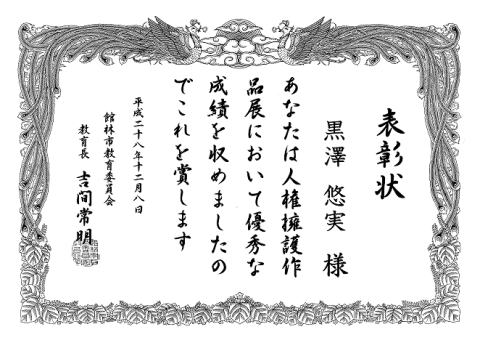 表彰状
黒澤 悠実 様
あなたは人権擁護作
品展において優秀な
成績を収めましたの
でこれを賞します
平成二十八年十二月八日
館林市教育委員会
教育長 吉間常明